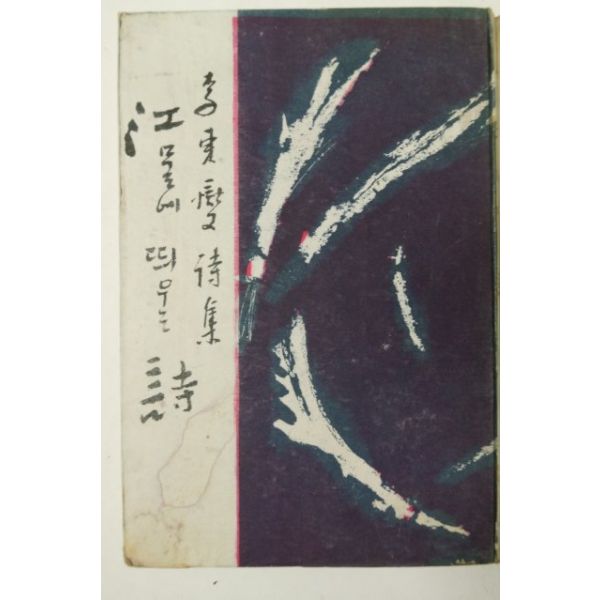 李東燮詩集
江물에 띄우는 詩